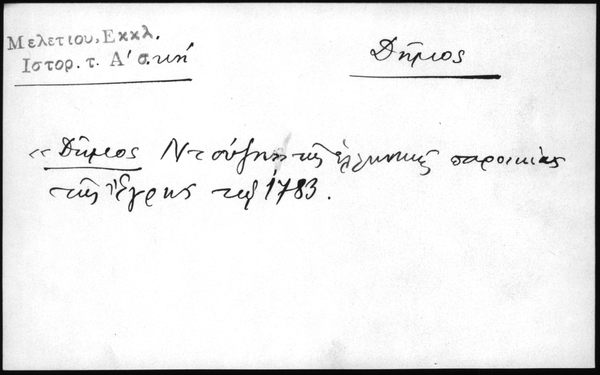 Μελετίου, Εκκλ.
Ιστορ. τ. Α' σ. κή
Δῆμος
« Δῆμος Ντσύζης τῆς ἑλληνικῆς παροικίας
τῆς Ἔγρης τῷ 1783.